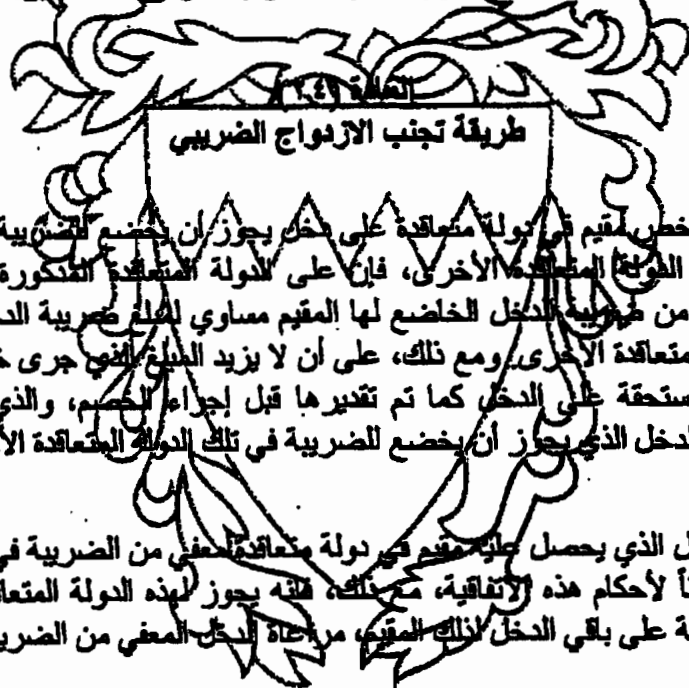 المادة (٢٤)
طريقة تجنب الازدواج الضريبي
مقيم في دولة متعاقدة على دخل يجوز أن يخضع للضريبة
الدولة المتعاقدة الأخرى، فإن على الدولة المتعاقدة المذكورة
من ضريبة الدخل الخاضع لها المقيم مساوي لمبلغ ضريبة
متعاقدة الأخرى. ومع ذلك، على أن لا يزيد المبلغ الذي جرى
ستحقة على الدخل كما تم تقديرها قبل إجراء الخصم، والذي
لدخل الذي يجوز أن يخضع للضريبة في تلك الدولة المتعاقدة
الذي يحصل عليه مقيم في دولة متعاقدة معفي من الضريبة في
لأحكام هذه الاتفاقية، مع ذلك، فإنه يجوز لهذه الدولة
على باقي الدخل لذلك المقيم، مراعاة الدخل المعفي من